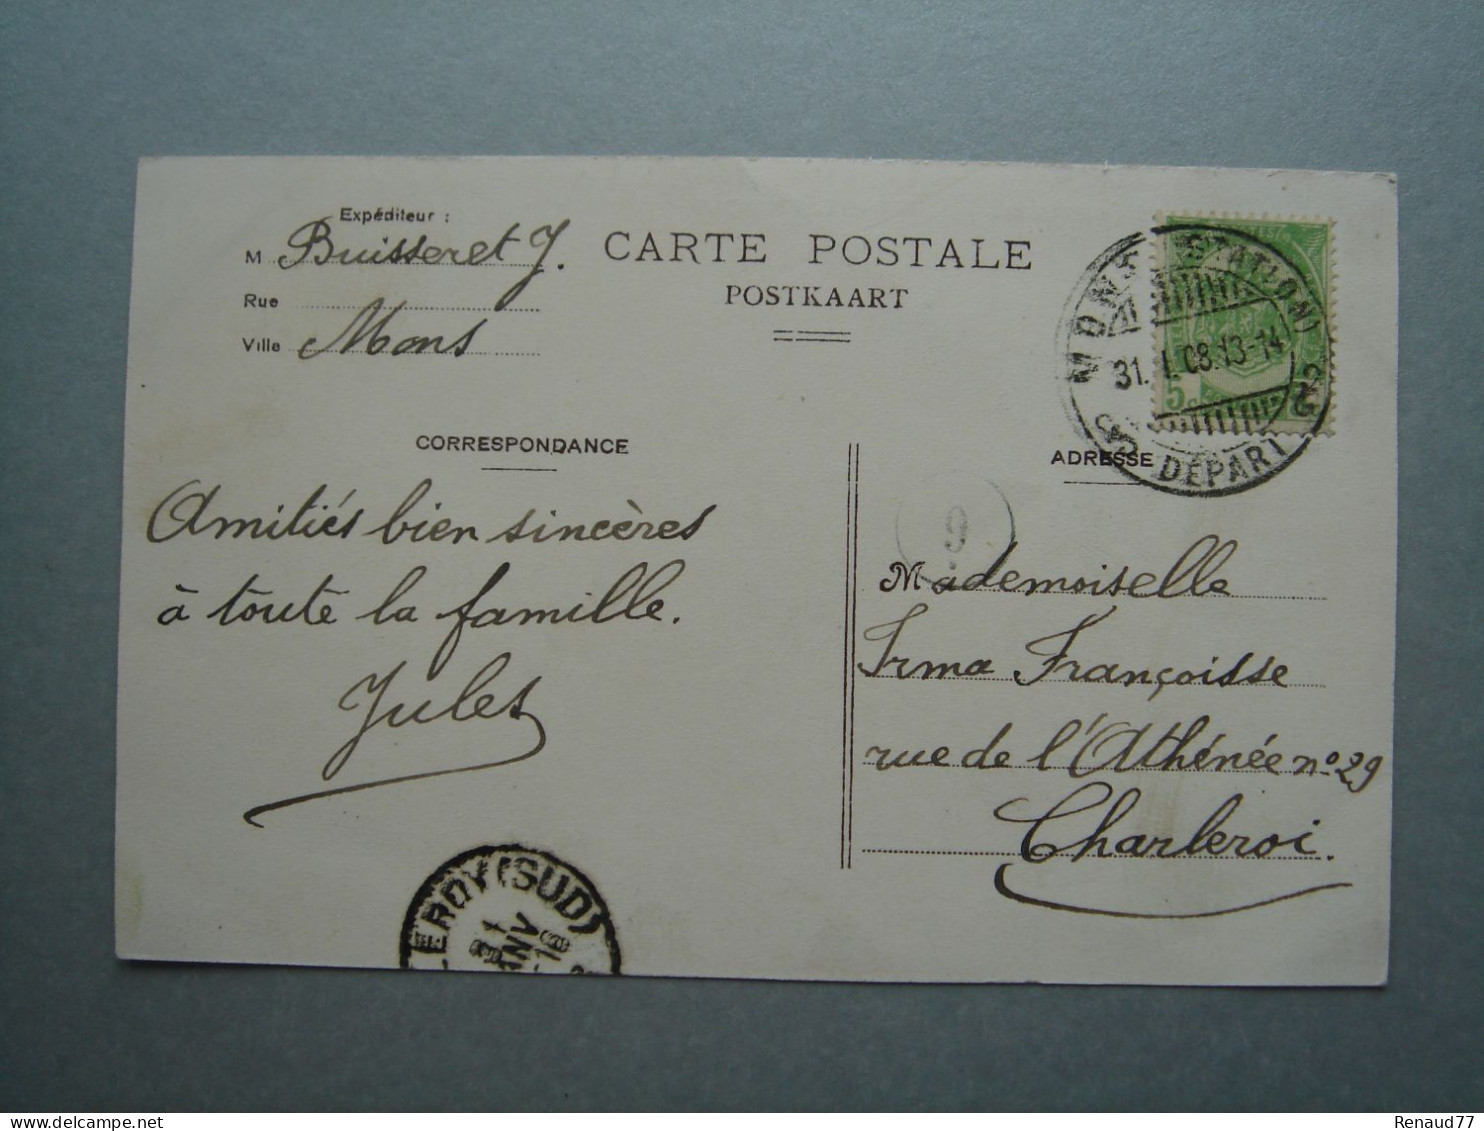 Expéditeur :
M Buisseret J.
Rue
Ville Mons
CARTE POSTALE
POSTKAART
MONS (STATION)
31. I. 08. 13-14
DÉPART
5
CORRESPONDANCE
ADRESSE
9
Amitiés bien sincères
à toute la famille.
Jules
Mademoiselle
Irma Françoisse
rue de l'Athénée nº 29
Charleroi.
LEROY (SUD)
Renaud77